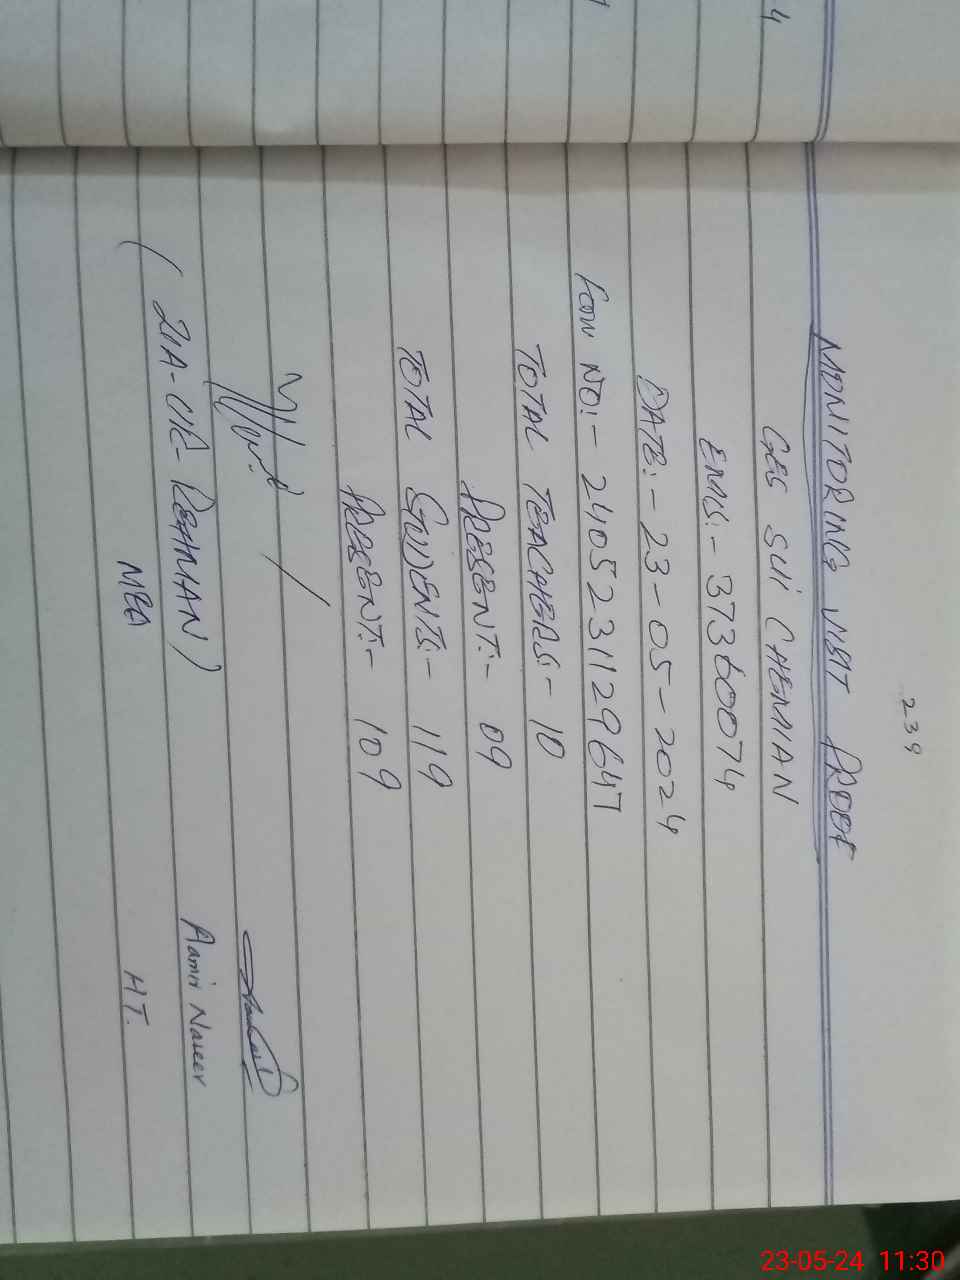 239
MONITORING VISIT PROOF
GES SUI CHEMIAN
EMIS:- 37360074
DATE:- 23-05-2024
FORM NO:- 2405231129647
TOTAL TEACHERS:- 10
PRESENT:- 09
TOTAL STUDENTS:- 119
PRESENT:- 109
(ZIA-UR-REHMAN)
Aamir Naseer
MEA
H.T.
23-05-24 11:30